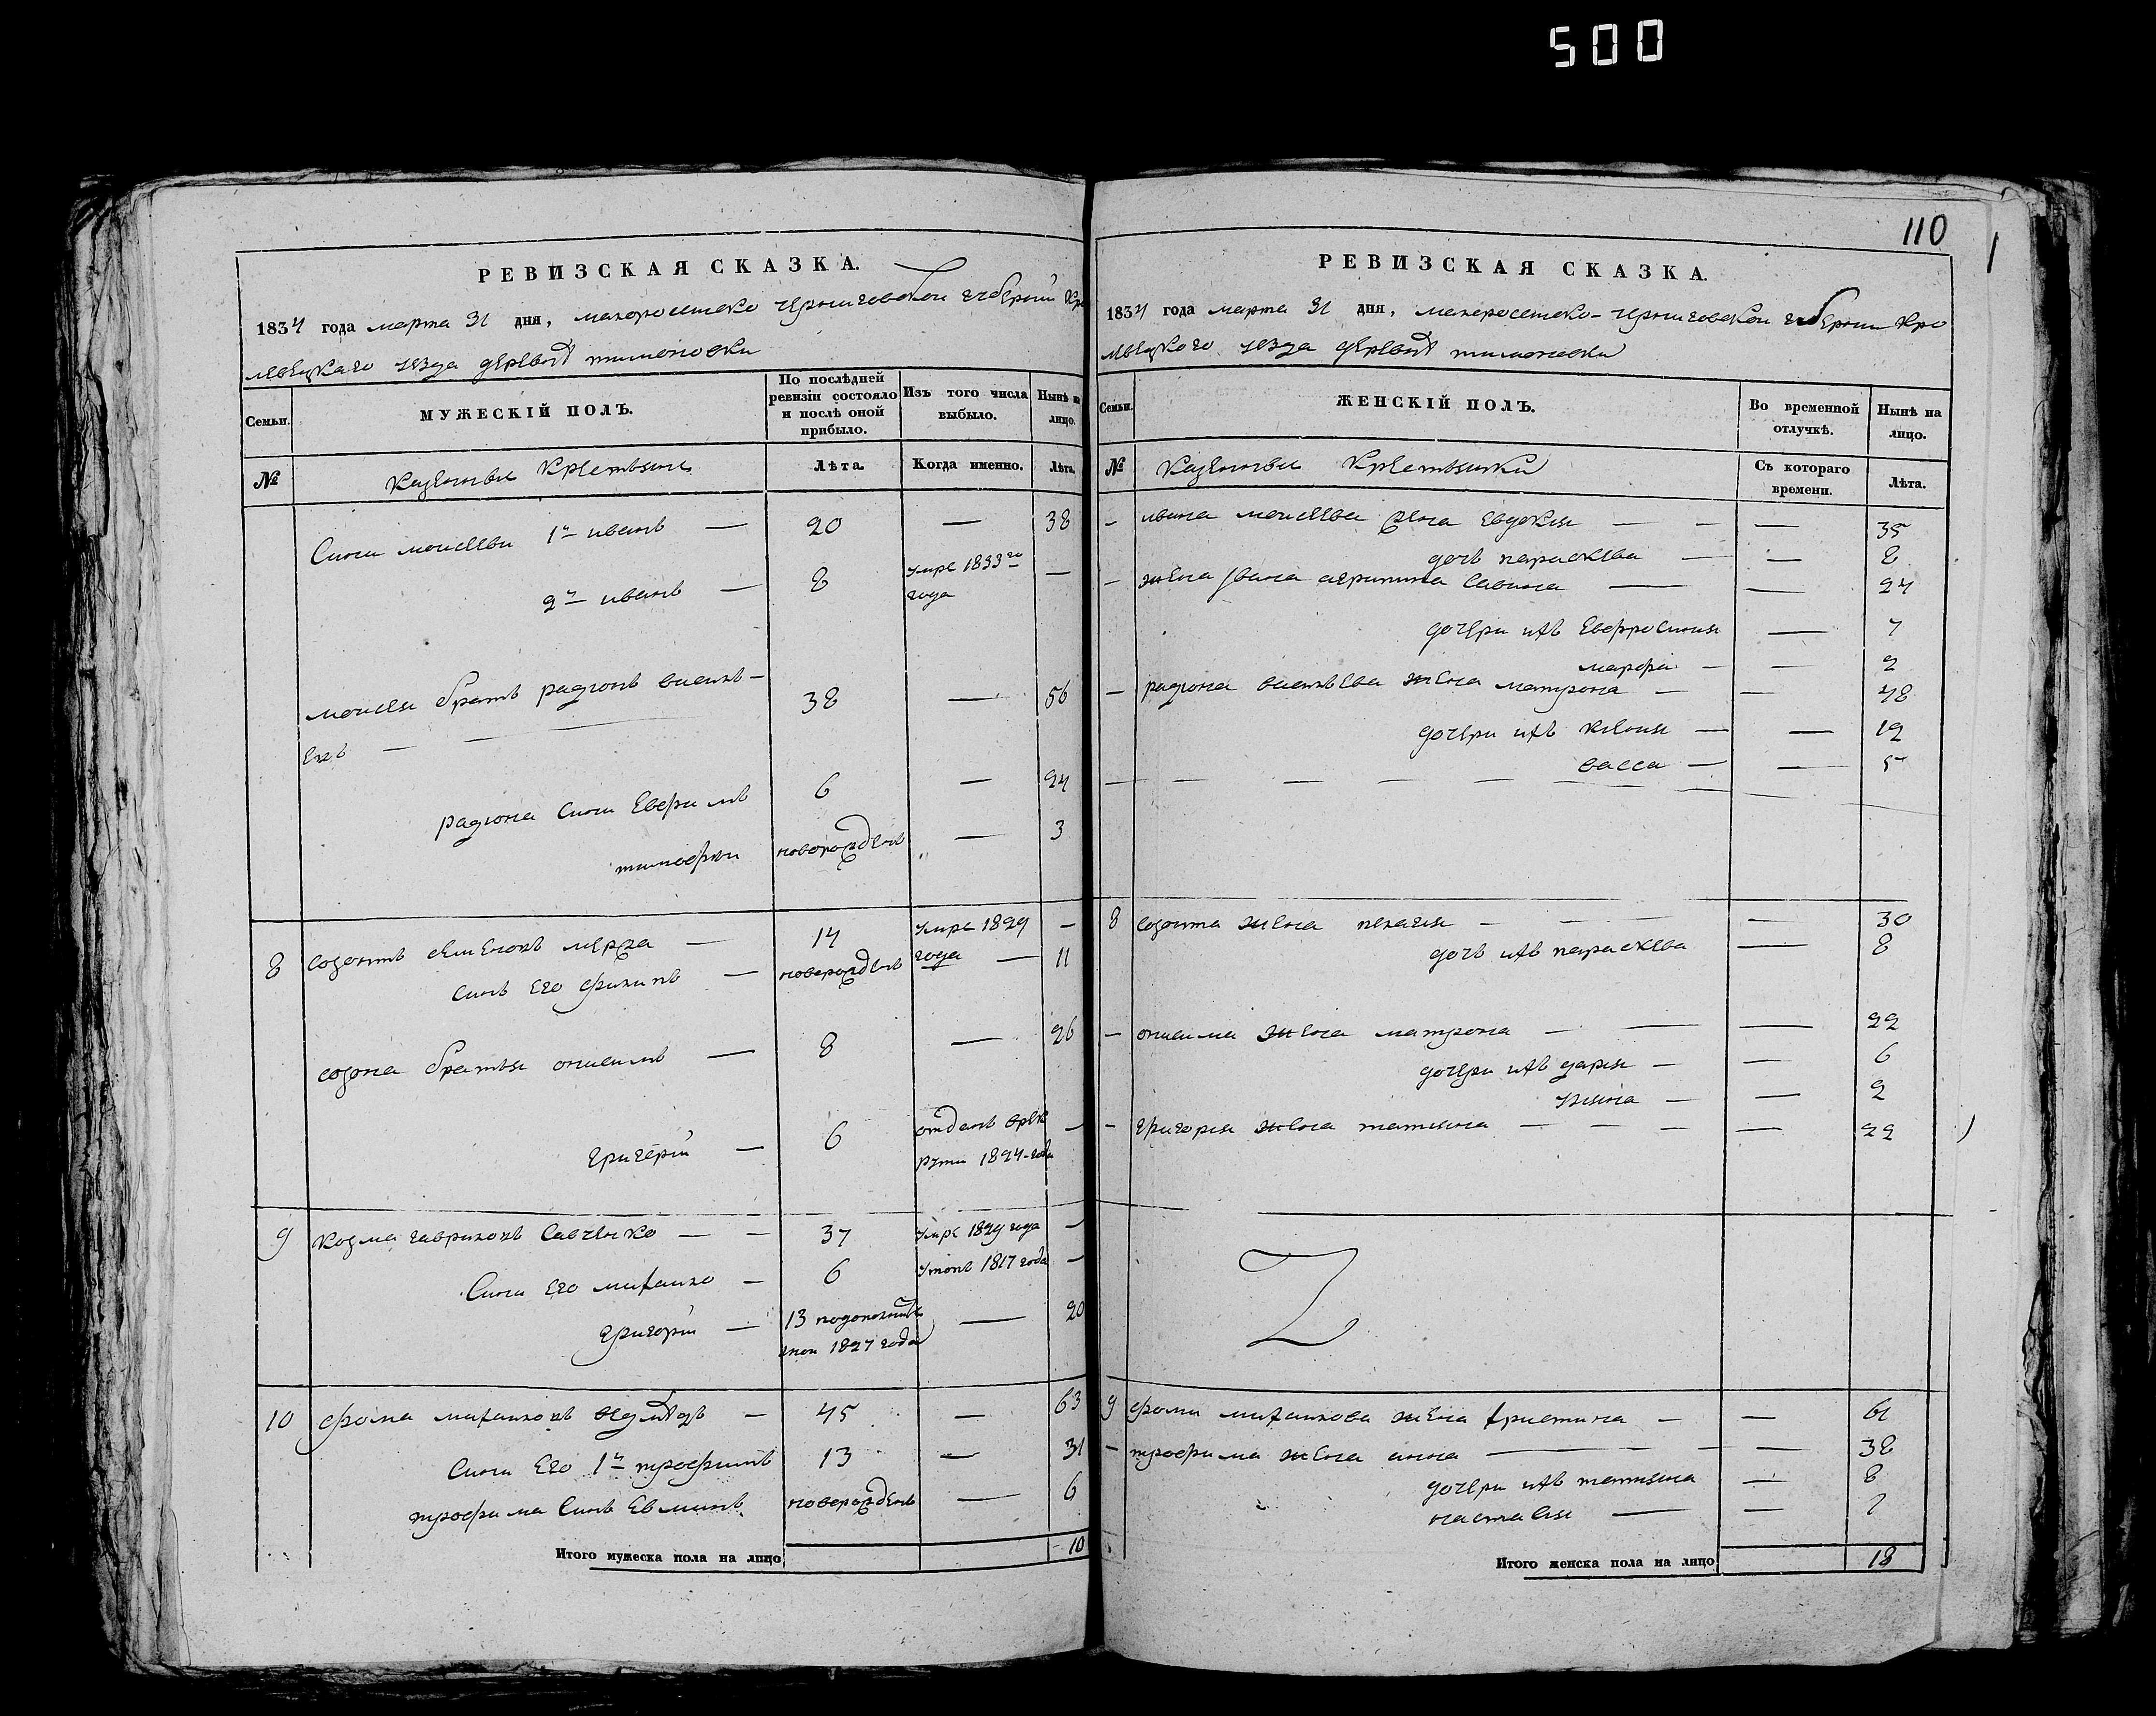 500
110
РЕВИЗСКАЯ СКАЗКА.
1834 года марта 31 дня, малоросейско Черниговской губернїи Кро
левецкаго уезда деревни тимоновки
Семьи.
МУЖЕСКІЙ ПОЛЪ.
По послѣдней ревизіи состояло и послѣ оной прибыло.
Изъ того числа выбыло.
Нынѣ на лицо.
№
Казенныи Крестьяни
Лѣта.
Когда именно.
Лѣта.
Сыни моисееви 1й иванъ — 20 — 38
2й иванъ — 8 умре 1833го года —
моисея братъ радионъ 38 — 56
радиона сыни 6 — 24
тимофѣи новорожденъ — 3
8 созонтъ семеновъ 14 умре 1829 года —
синъ его филипъ — новорожденъ — 11
созона братья онисимъ — 8 — 26
григерїи — 6 отданъ врек
рути 1824 года —
9 козма гавриловъ Савченко — — 37 умре 1829 года —
Сыни его михаило — 6 утопъ 1817 года —
григорїи — 13 — 20
1827 года
10 фома михаиловъ — 45 — 63
Сыни его 1й трофимъ 13 — 31
трофима Синъ новорожденъ — 6
Итого мужеска пола на лицо 10
РЕВИЗСКАЯ СКАЗКА.
1834 года марта 31 дня, малоросейско-Черниговской губернїи Кро
левецкого уезда деревни тимоновки
Семьи.
ЖЕНСКІЙ ПОЛЪ.
Во временной отлучкѣ.
Нынѣ на лицо.
№
Казенныи Крестьянки
Съ котораго времени.
Лѣта.
— ивана моисеева жена евдокия — — — 35
дочъ парасковя — — 8
— жена ивана агрипина Савина — — 24
дочери ихъ Евфросиния — 7
марфа — — 2
— радиона жена матрона — — 48
дочери ихъ — — 19
васса — — 5
8 созонта жена пелагия — — — — 30
дочъ ихъ парасковя — 8
— онисима жена матрона — — — 22
дочери ихъ дария — — 6
улияна — — 2
— григория жена татияна — — — — 22
9 фоми михаилова жена христина — — 61
— трофима жена анна — — — 38
дочери ихъ татияна — 8
настасия — —
Итого женска пола на лицо 18